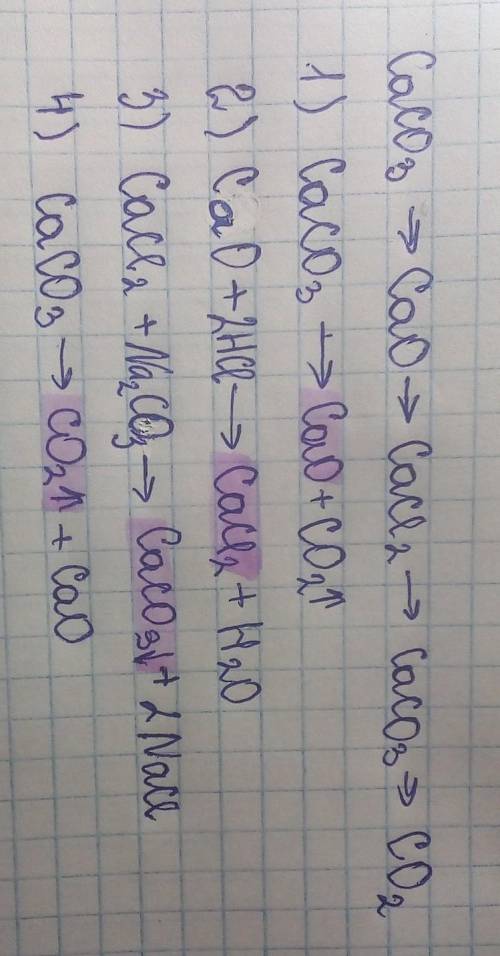 CaCO₃ → CaO → CaCl₂ → CaCO₃ → CO₂
1) CaCO₃ → CaO + CO₂↑
2) CaO + 2HCl → CaCl₂ + H₂O
3) CaCl₂ + Na₂CO₃ → CaCO₃↓ + 2NaCl
4) CaCO₃ → CO₂↑ + CaO